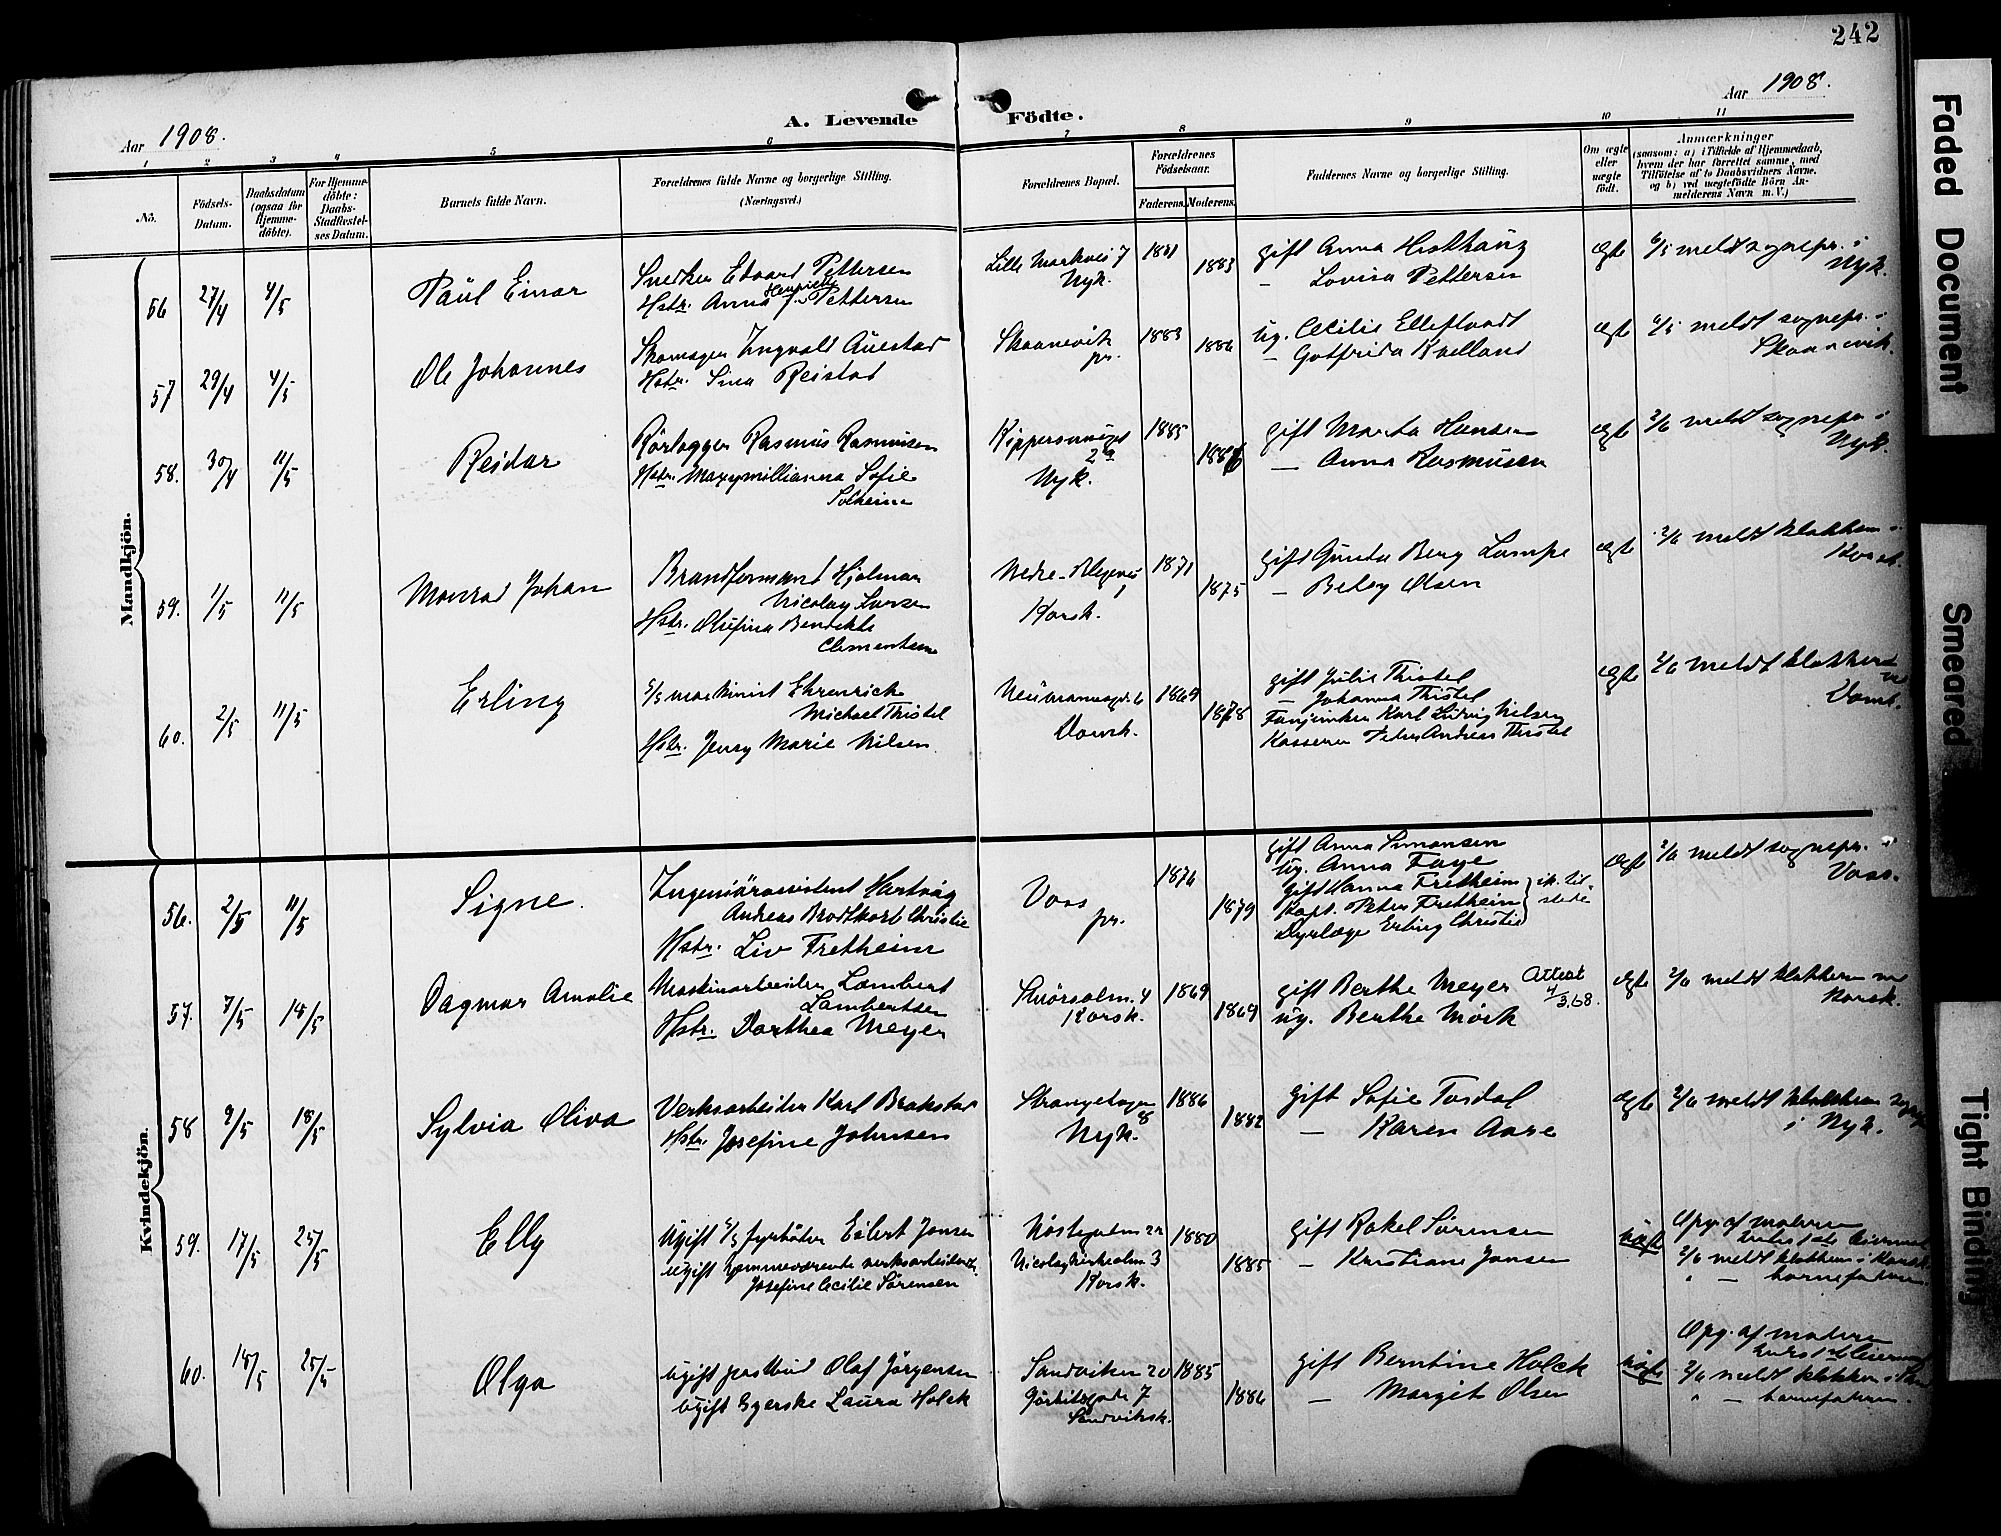 242
Aar 1908.
Aar 1908.
A. Levende Födte.
1 2 3 4 5 6 7 8 9 10 11
No.
Födsels-
Datum.
Daabsdatum
(ogsaa for
Hjemme-
döbte).
For Hjemme-
döbte:
Daabs-
Stadfæstel-
ses Datum.
Barnets fulde Navn.
Forældrenes fulde Navne og borgerlige Stilling.
(Næringsvei.)
Forældrenes Bopæl.
Forældrenes
Födselsaar.
Faderens. Moderens.
Faddernes Navne og borgerlige Stilling.
Om ægte
eller
uægte
födt.
Anmærkninger
(saasom: a) i Tilfælde af Hjemmedaab,
hvem der har forrettet samme, med
Tilföielse af to Daabsvidners Navne.
og b) ved uægtefödte Börn An-
melderens Navn m. V.)
Mandkjön.
56 27/4 4/5 Paul Einar
Snedker Edvard Pettersen
Hstr. Anna Henriette Pettersen
Lille Markvei 7
Nyk.
1881 1883
gift Anna
— Lovisa Pettersen
ægte
6/5 meldt sognepr. i
Nyk.
57 29/4 4/5 Ole Johannes
Skomager Ingvald Auestad
Hstr. Sina Reistad
Skaanevik
pr.
1883 1886
ug. Cecilie
— Gotfrida Kvelland
ægte
6/5 meldt sognepr. i
Skaanevik.
58. 30/4 11/5 Reidar
Rörlægger Rasmus Rasmusen
Hstr. Maxymillianna Sofie
Solheim
2a
Nyk.
1885 1886
gift Marta Hansen
— Anna Rasmusen
ægte
2/6 meldt sognepr i
Nyk.
59. 1/5 11/5 Monrad Johan
Brandformand Hjalmar
Nicolay Larsen
Hstr. Olufina Bendikte
Clementsen
Nedre
Korsk.
1871 1875
gift Gunda Berg Lampe
— Betsy Olsen
ægte
2/6 meldt klokkeren i
Korsk.
60. 2/5 11/5 Erling
s/s maskinist Ehrenrich
Michael Thistel
Hstr. Jenny Marie Nilsen.
Neumannsgd. 6
Domk.
1869 1878
gift Julie Thistel
— Johanna Thistel
Fanejunker Karl Ludvig Nilsen
Kasserer Peter Andreas Thistel
ægte
2/6 meldt klokkeren
Domk.
Kvindekjön.
56. 2/5 11/5 Signe.
Ingeniörassistent Hartvig
Andreas Brodtkorb Christie
Hstr. Liv Fretheim
Voss
pr.
1876 1879
gift Anna Simonsen
ug. Anna Faye
gift Hanna Fretheim
Kapt. Peter Fretheim
Dyrlæge Erling Christie
ik. til-
stede
ægte
2/6 meldt sognepr. i
Voss.
57. 7/5 18/5 Dagmar Amalie
Maskinarbeider Lambert
Lambertsen
Hstr. Dorthea Meyer
4
Korsk.
1869 1869
gift Berthe Meyer
ug. Berthe Mörk
Attest
4/3.68.
ægte
2/6 meldt klokkeren
Korsk.
58 9/5 18/5 Sylvia Oliva
Verksarbeider Karl Brakstad
Hstr. Josefine Johnsen
Strangehagen
8
Nyk.
1886 1882
gift Sofie Tosdal
— Karen Aase
ægte
2/6 meldt
i Nyk.
59. 17/5 25/5 Elly
Ugift s/s fyrböder Eilert Jansen
ugift hjemmeværende verksarbeiderdt.
Josefine Cecilie Sörensen
22
Nicolaikirkealm. 3
Korsk.
1880 1885
gift Rakel Sörensen
— Kristiane Jansen
uægte
Opg. af moderen
2/6 meldt klokkeren i Korsk.
" — barnefaderen
60. 15/5 25/5 Olga
Ugift postbud Olaf Jörgensen
Ugift syerske Laura Holck
Sandviken 20
7
Sandviksk.
1885 1886
gift Berntine Holck
— Margit Olsen
uægte
Opg. af moderen
2/6 meldt klokkeren i
" — barnefaderen.
Faded Document
Smeared
Tight Binding